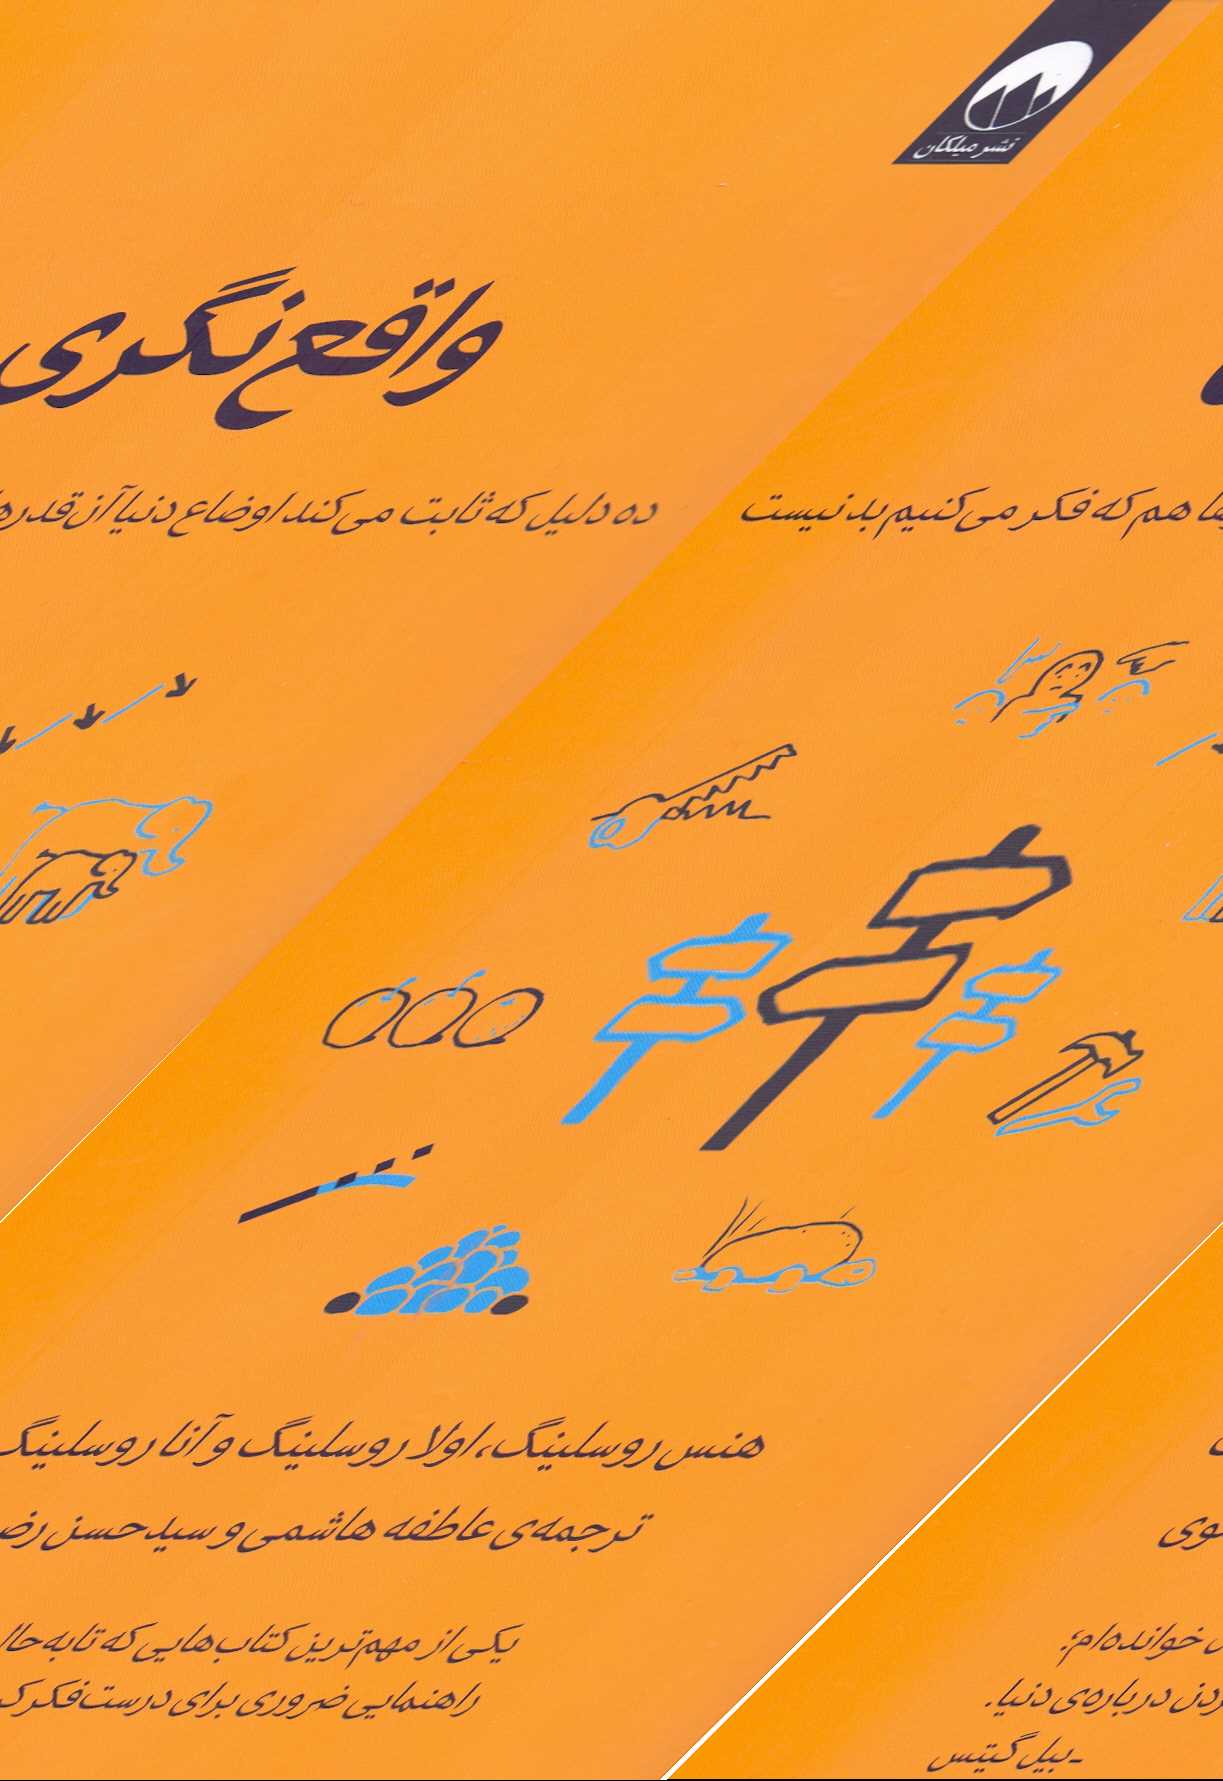 نشر میلکان
واقع‌نگری
ده دلیل که ثابت می‌کند اوضاع دنیا آن‌قدرها هم که فکر می‌کنیم بد نیست
هنس روسلینگ، اولا روسلینگ و آنا روسلینگ
ترجمه‌ی عاطفه هاشمی و سیدحسن رضوی
یکی از مهم‌ترین کتاب‌هایی که تا به حال خوانده‌ام؛
راهنمایی ضروری برای درست فکر کردن درباره‌ی دنیا.
ـ بیل گیتس